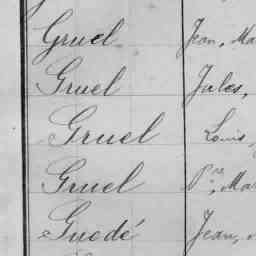 Gruel Jean, Ma
Gruel Jules,
Gruel Louis,
Gruel P.re, Mar
Guodé Jean,